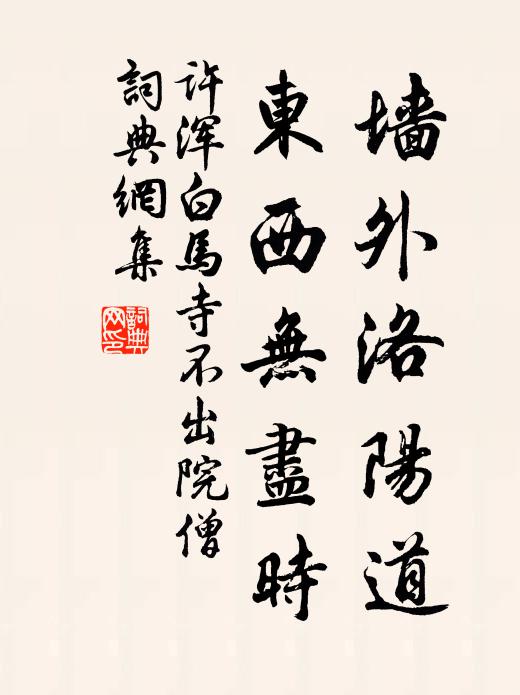 墙外洛陽道
東西無盡時
许渾白馬寺不出院僧
詞典網集
詞典网印